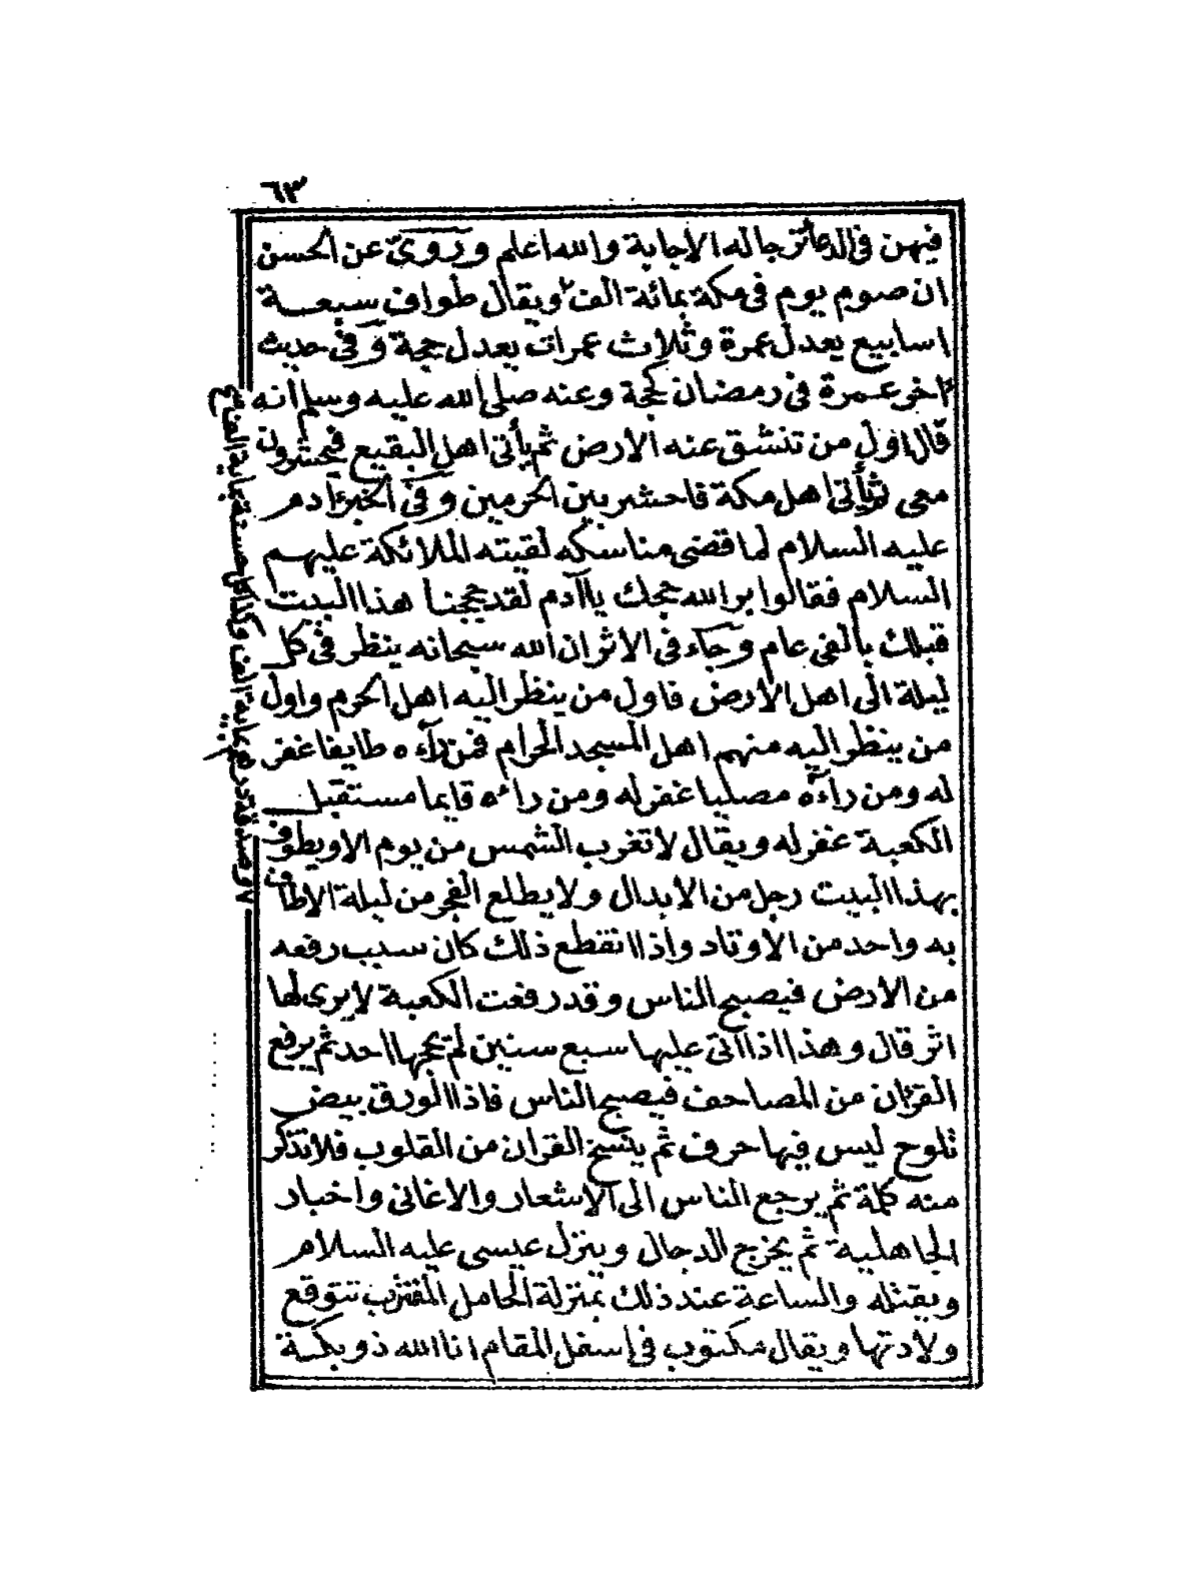 ٦٣
فيهن في الدعا ترجا له الاجابة والله اعلم وروي عن الحسن
ان صوم يوم في مكة بمائة الف ٧ ويقال طواف سبعة
اسابيع يعدل عمرة وثلاث عمرات يعدل حجة وفي حديث
اخر عمرة في رمضان كحجة وعنه صلى الله عليه وسلم انه
قال اول من تنشق عنه الارض ثم يأتي اهل البقيع فيحشرون
معي ثم يأتي اهل مكة فاحشر بين الحرمين وفي الخبر آدم
عليه السلام لما قضى مناسكه لقيته الملائكة عليهم
السلام فقالوا بر الله حجك يا آدم لقد حججنا هذا البيت
قبلك بالفي عام وجاء في الاثر ان الله سبحانه ينظر في كل
ليلة الى اهل الارض فاول من ينظر اليه اهل الحرم واول
من ينظر اليه منهم اهل المسجد الحرام فمن رآءه طايفا غفر
له ومن رآءه مصليا غفر له ومن راءه قايما مستقبل
الكعبة غفر له ويقال لا تغرب الشمس من يوم الا ويطوف
بهذا البيت رجل من الابدال ولا يطلع الفجر من ليلة الا طاف
به واحد من الاوتاد واذا انقطع ذلك كان سبب رفعه
من الارض فيصبح الناس وقد رفعت الكعبة لا يرى لها
اثر قال وهذا اذا اتى عليها سبع سنين لم يحجها احد ثم يرفع
القرءان من المصاحف فيصبح الناس فاذا الورق بيض
تلوح ليس فيها حرف ثم ينسخ القران من القلوب فلا تذكر
منه كلمة ثم يرجع الناس الى الاشعار والاغاني واخبار
الجاهلية ثم يخرج الدجال وينزل عيسى عليه السلام
ويقتله والساعة عند ذلك بمنزلة الحامل المقرب تتوقع
ولادتها ويقال مكتوب في اسفل المقام انا الله ذو بكة
٧ وصدقة درهم بماية الف وكذا كل حسنة بماية الف